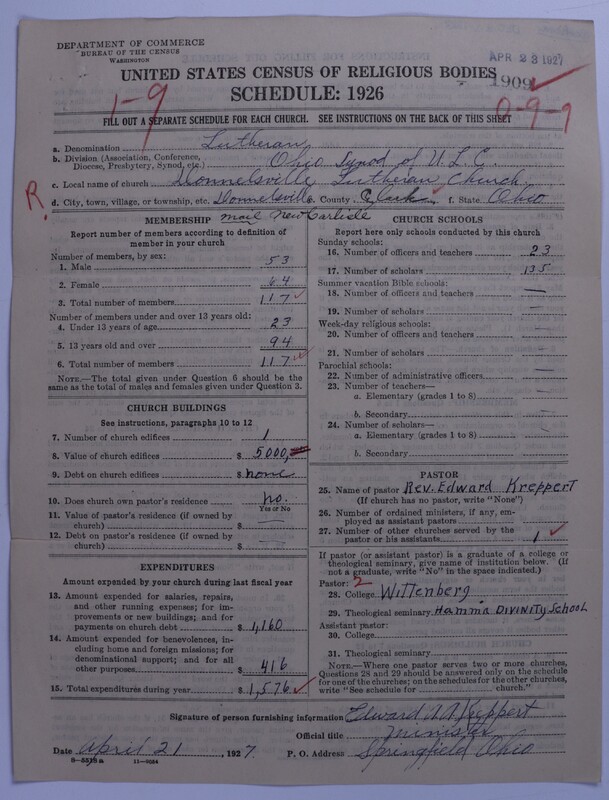 DEPARTMENT OF COMMERCE
BUREAU OF THE CENSUS
WASHINGTON
APR 23 1927
UNITED STATES CENSUS OF RELIGIOUS BODIES
1909
SCHEDULE: 1926
1-9
0-9-9
FILL OUT A SEPARATE SCHEDULE FOR EACH CHURCH. SEE INSTRUCTIONS ON THE BACK OF THIS SHEET
a. Denomination Lutheran
b. Division (Association, Conference, Diocese, Presbytery, Synod, etc.) Ohio Synod of U.L.C.
c. Local name of church Donnelsville Lutheran Church
R.
d. City, town, village, or township, etc. Donnelsville e. County Clark f. State Ohio
mail New Carlisle
MEMBERSHIP
Report number of members according to definition of member in your church
Number of members, by sex:
1. Male 53
2. Female 64
3. Total number of members 117
Number of members under and over 13 years old:
4. Under 13 years of age 23
5. 13 years old and over 94
6. Total number of members 117
NOTE.—The total given under Question 6 should be the same as the total of males and females given under Question 3.
CHURCH BUILDINGS
See instructions, paragraphs 10 to 12
7. Number of church edifices 1
8. Value of church edifices $ 5000,
9. Debt on church edifices $ none
10. Does church own pastor's residence no.
Yes or No
11. Value of pastor's residence (if owned by church) $ —
12. Debt on pastor's residence (if owned by church) $ —
EXPENDITURES
Amount expended by your church during last fiscal year
13. Amount expended for salaries, repairs, and other running expenses; for improvements or new buildings; and for payments on church debt $ 1,160
14. Amount expended for benevolences, including home and foreign missions; for denominational support; and for all other purposes $ 416
15. Total expenditures during year $ 1,576
CHURCH SCHOOLS
Report here only schools conducted by this church
Sunday schools:
16. Number of officers and teachers 23
17. Number of scholars 135
Summer vacation Bible schools:
18. Number of officers and teachers —
19. Number of scholars —
Week-day religious schools:
20. Number of officers and teachers —
21. Number of scholars —
Parochial schools:
22. Number of administrative officers —
23. Number of teachers—
a. Elementary (grades 1 to 8) —
b. Secondary —
24. Number of scholars—
a. Elementary (grades 1 to 8) —
b. Secondary —
PASTOR
25. Name of pastor Rev. Edward Kreppert
(If church has no pastor, write "None")
26. Number of ordained ministers, if any, employed as assistant pastors
27. Number of other churches served by the pastor or his assistants 1
If pastor (or assistant pastor) is a graduate of a college or theological seminary, give name of institution below. (If not a graduate, write "No" in the space indicated.)
Pastor: 2
28. College Wittenberg
29. Theological seminary Hamma Divinity School
Assistant pastor:
30. College
31. Theological seminary
NOTE.—Where one pastor serves two or more churches, Questions 28 and 29 should be answered only on the schedule for one of the churches; on the schedules for the other churches, write "See schedule for church."
Signature of person furnishing information Edward A. Kreppert
Official title minister
Date April 21, 1927 P. O. Address Springfield Ohio
8-5518a 11-9034